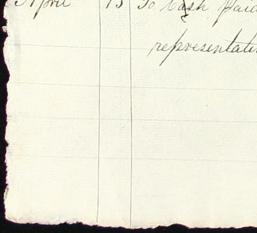 April 13 To Cash paid
representati